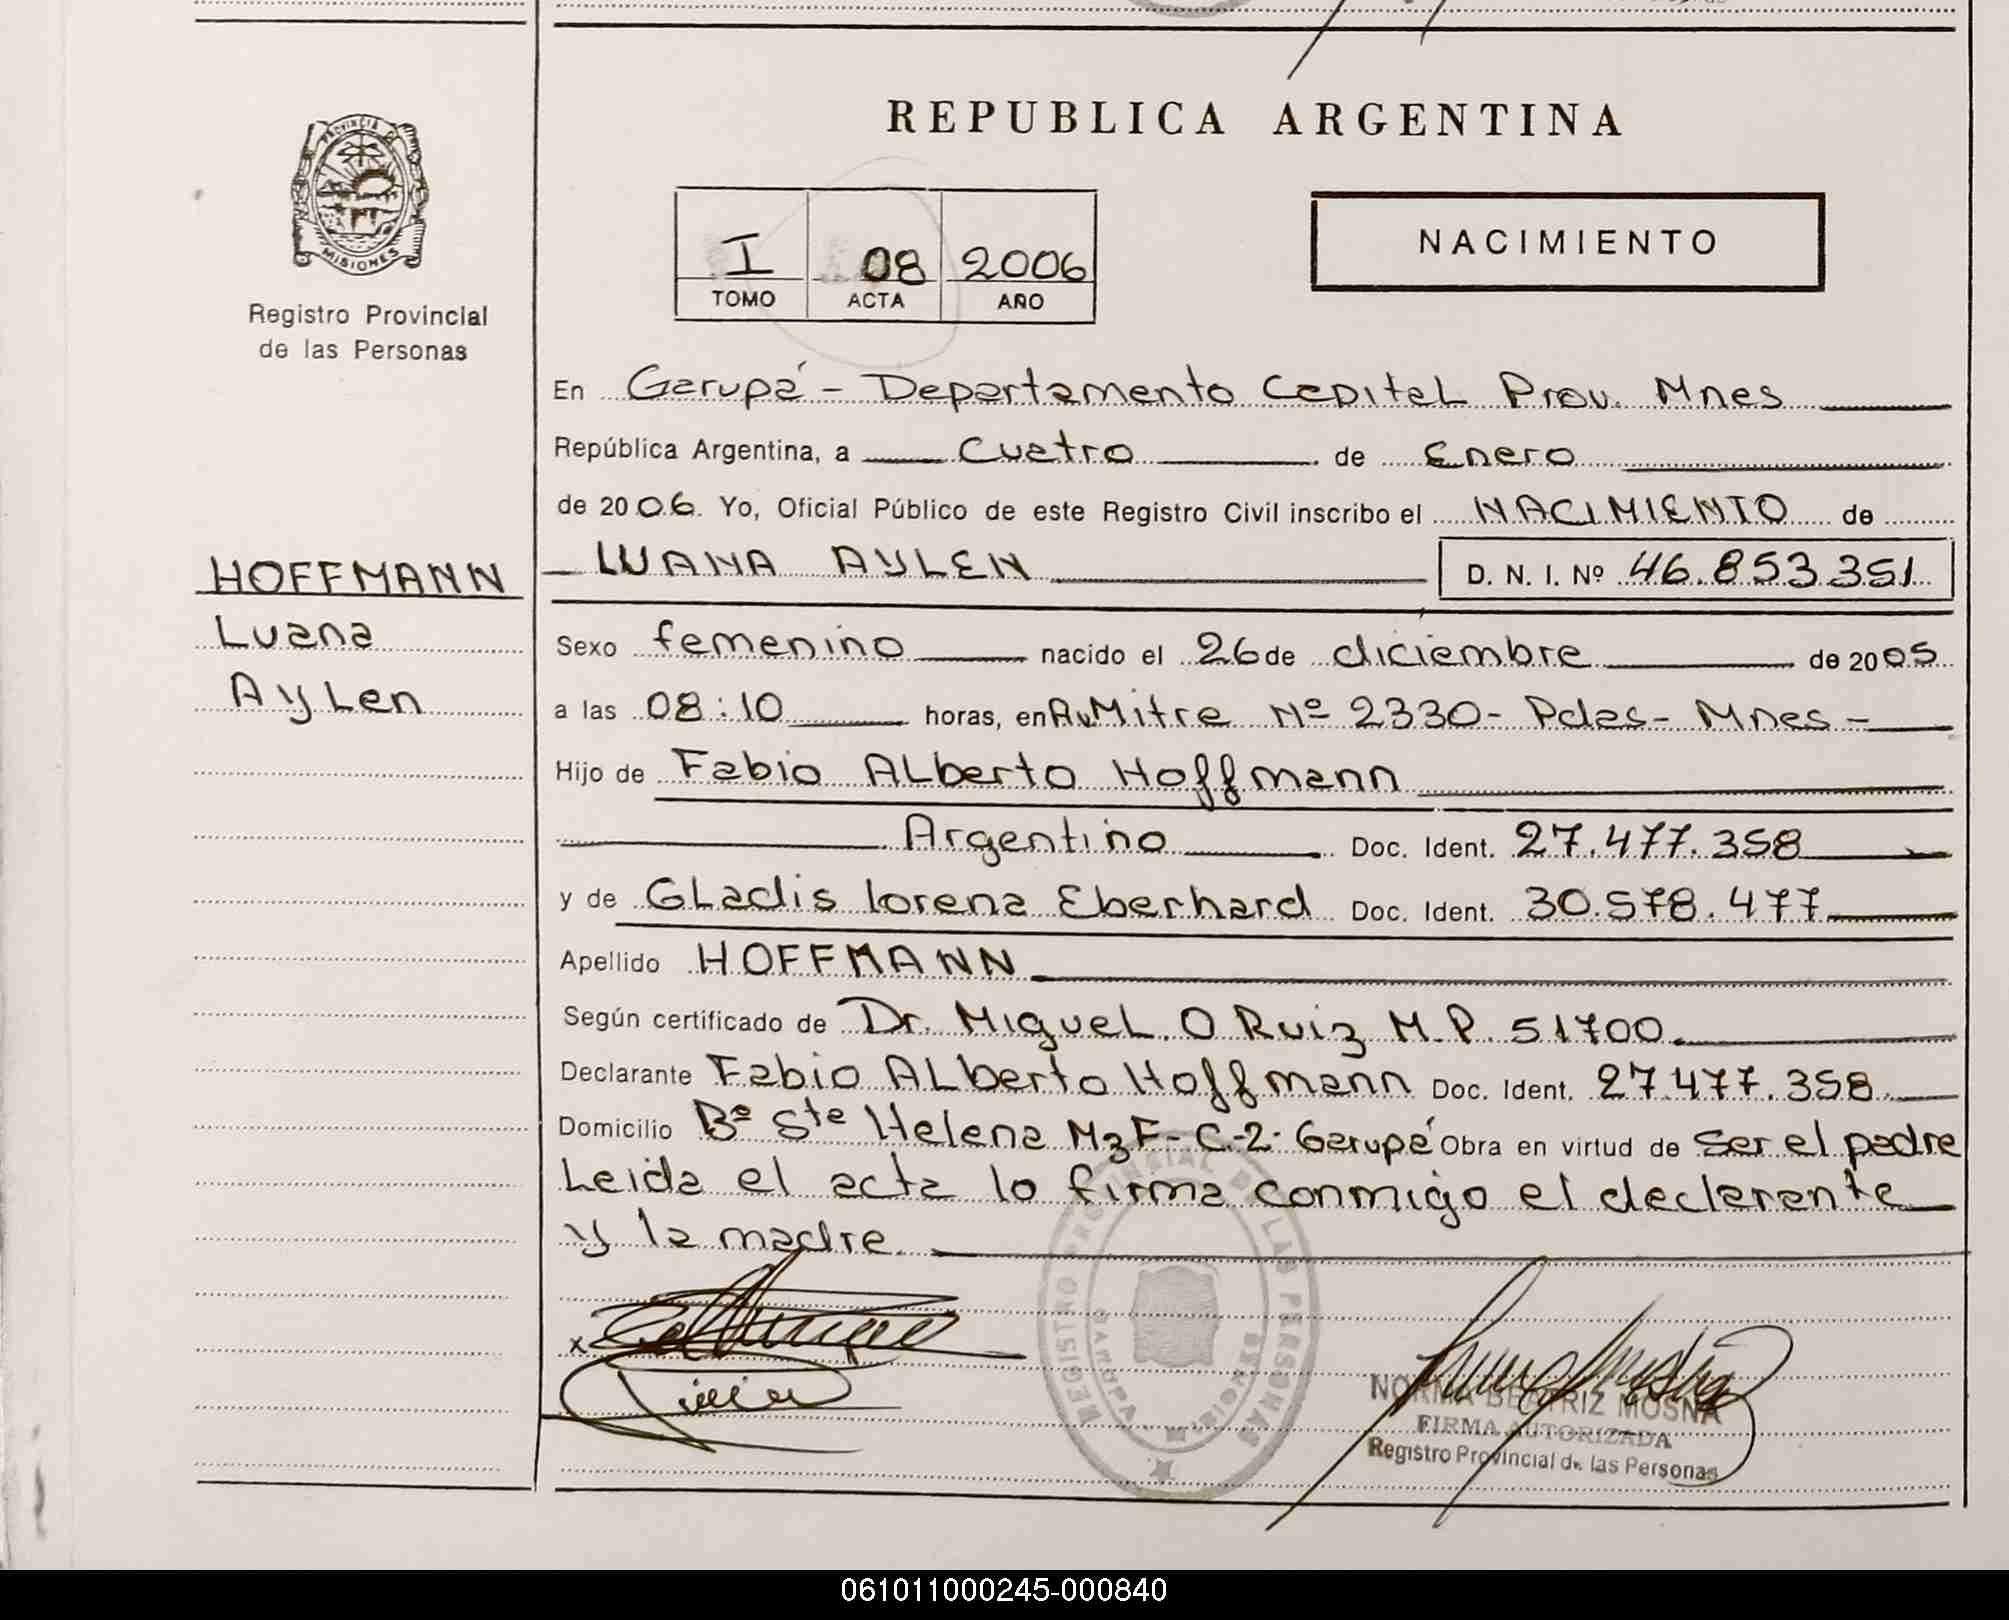 REPUBLICA ARGENTINA
PROVINCIA DE
MISIONES
Registro Provincial
de las Personas
I 08 2006
TOMO ACTA AÑO
NACIMIENTO
En Garupá - Departamento Capital Prov. Mnes
República Argentina, a Cuatro de Enero
de 2006. Yo, Oficial Público de este Registro Civil inscribo el NACIMIENTO de
HOFFMANN
Luana
Aylen
LUANA AYLEN D. N. I. Nº 46.853.351
Sexo femenino nacido el 26 de diciembre de 2005
a las 08:10 horas, en Av Mitre Nº 2330 - Pdas - Mnes -
Hijo de Fabio Alberto Hoffmann
Argentino Doc. Ident. 27.477.358
y de Gladis lorena Eberhard Doc. Ident. 30.578.477
Apellido HOFFMANN
Según certificado de Dr. Miguel O Ruiz M.P. 51700
Declarante Fabio Alberto Hoffmann Doc. Ident. 27.477.358
Domicilio Bº Sta Helena Mz F - C-2- Garupá Obra en virtud de Ser el padre
Leida el acta lo firma conmigo el declarante
y la madre.
REGISTRO PROVINCIAL DE LAS PERSONAS
GARUPA
MISIONES
x
NORMA BEATRIZ MOSNA
FIRMA AUTORIZADA
Registro Provincial de las Personas
061011000245-000840